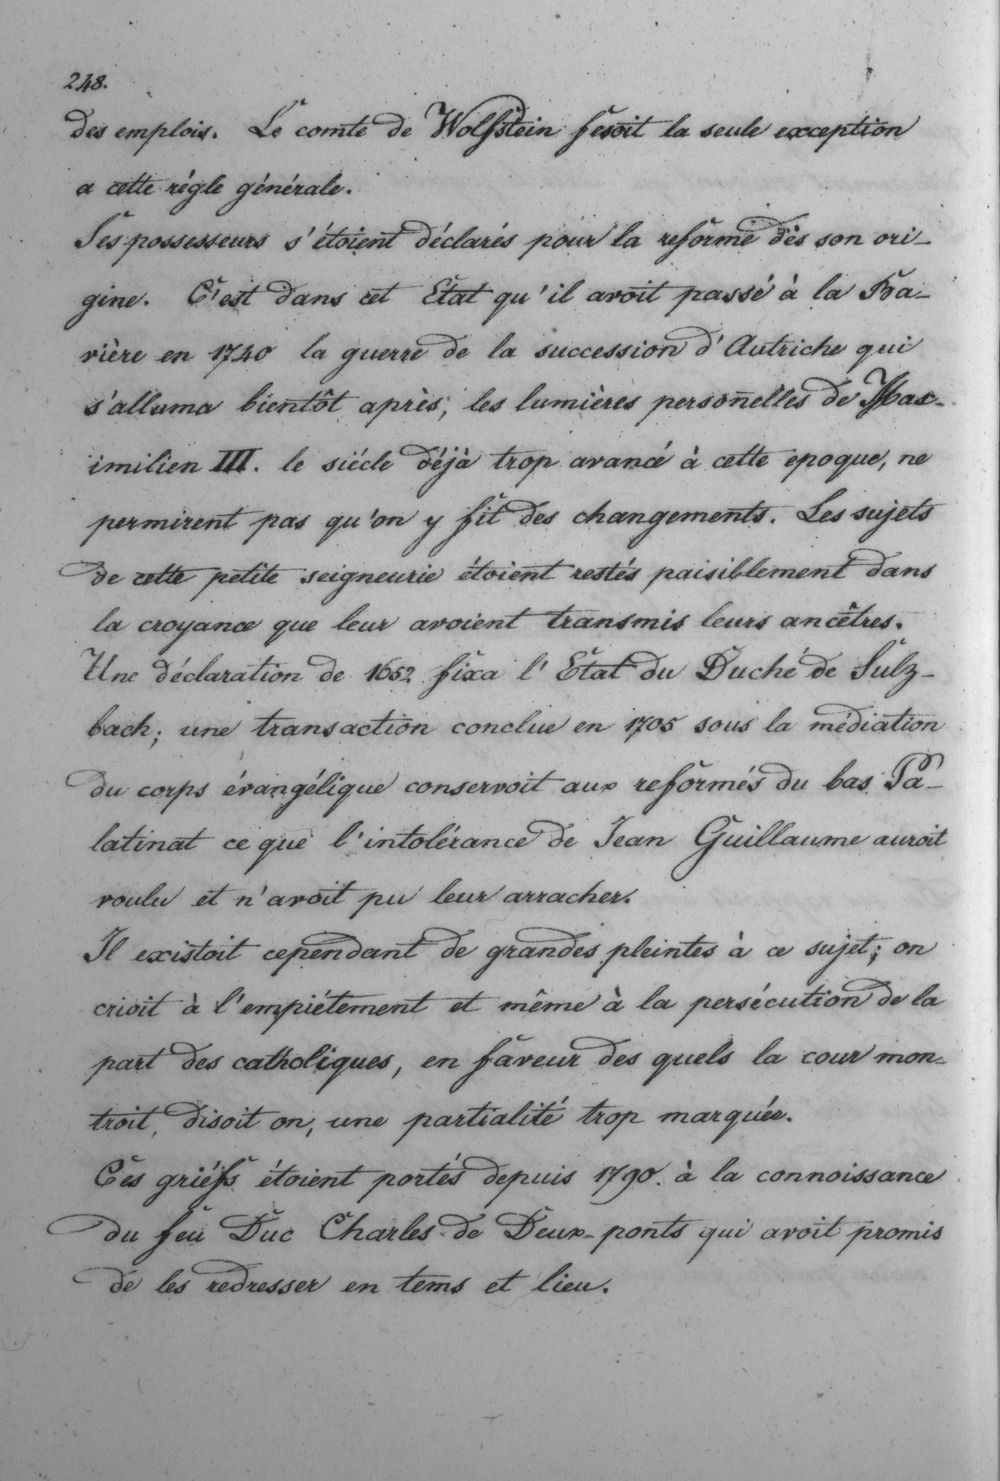 248.
des emplois. Le comte de Wolfstein fesoit la seule exception
a cette régle générale.
Ses possesseurs s'étoient déclarés pour la reforme dès son ori-
gine. C'est dans cet Etat qu'il avoit passé à la Ba-
vière en 1740 la guerre de la succession d'Autriche qui
s'alluma bientôt après; les lumières personnelles de Max-
imilien III. le siécle déjà trop avancé à cette epoque, ne
permirent pas qu'on y fit des changements. Les sujets
de cette petite seigneurie étoient restés paisiblement dans
la croyance que leur avoient transmis leurs ancêtres.
Une déclaration de 1652 fixa l'Etat du Duché de Sulz-
bach; une transaction conclue en 1705 sous la médiation
du corps évangélique conservoit aux reformés du bas Pa-
latinat ce que l'intolérance de Jean Guillaume auroit
voulu et n'avoit pu leur arracher.
Il existoit cependant de grandes pleintes à ce sujet; on
crioit à l'empiétement et même à la persécution de la
part des catholiques, en faveur des quels la cour mon-
troit, disoit on, une partialité trop marquée.
Ces griéfs étoient portés depuis 1790. à la connoissance
du feu Duc Charles de Deux-ponts qui avoit promis
de les redresser en tems et lieu.